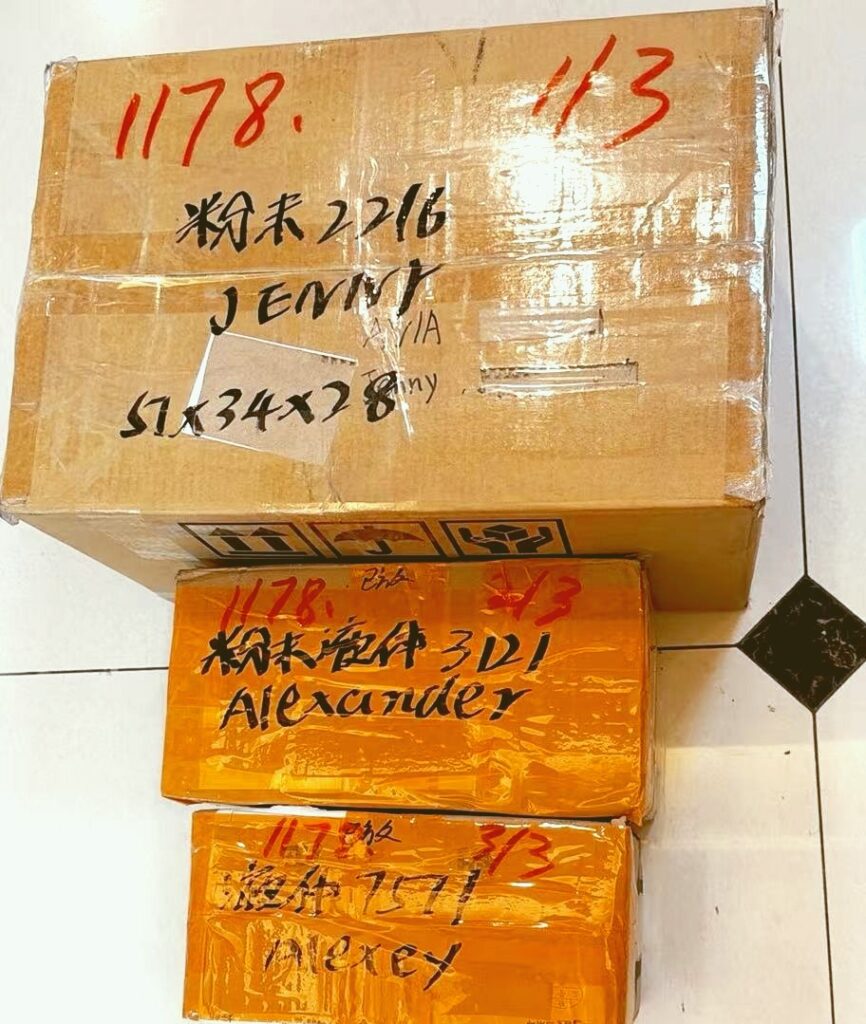 1178. 1/3
粉末2216
JENNY
AVIA
Jenny
51x34x28
1178. 2/3
粉末液体 3121
Alexander
1178. 3/3
液体 7571
Alexey